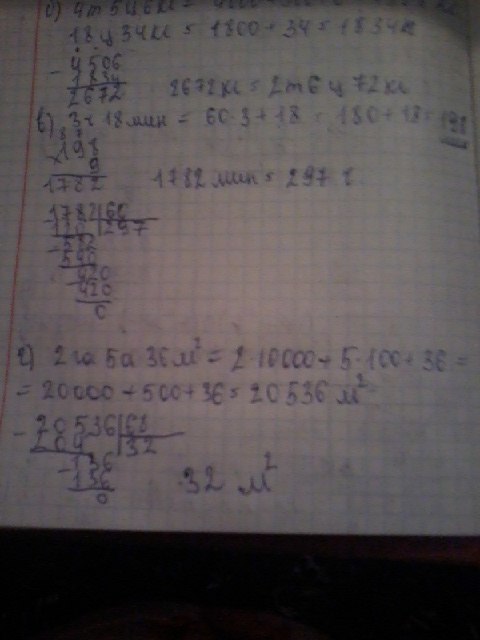 18 ц 34 кг = 1800 + 34 = 1834 кг
- 4506
1834
2672
2672 кг = 2 т 6 ц 72 кг
в) 3 ч 18 мин = 60·3 + 18 = 180 + 18 = 198
× 198
9
1782
1782 мин = 297 ч
1782 60
297
420
420
0
г) 2 га 5 а 36 м² = 2·10000 + 5·100 + 36 =
= 20000 + 500 + 36 = 20536 м²
- 20536 68
204 32
- 136
136
0
32 м²